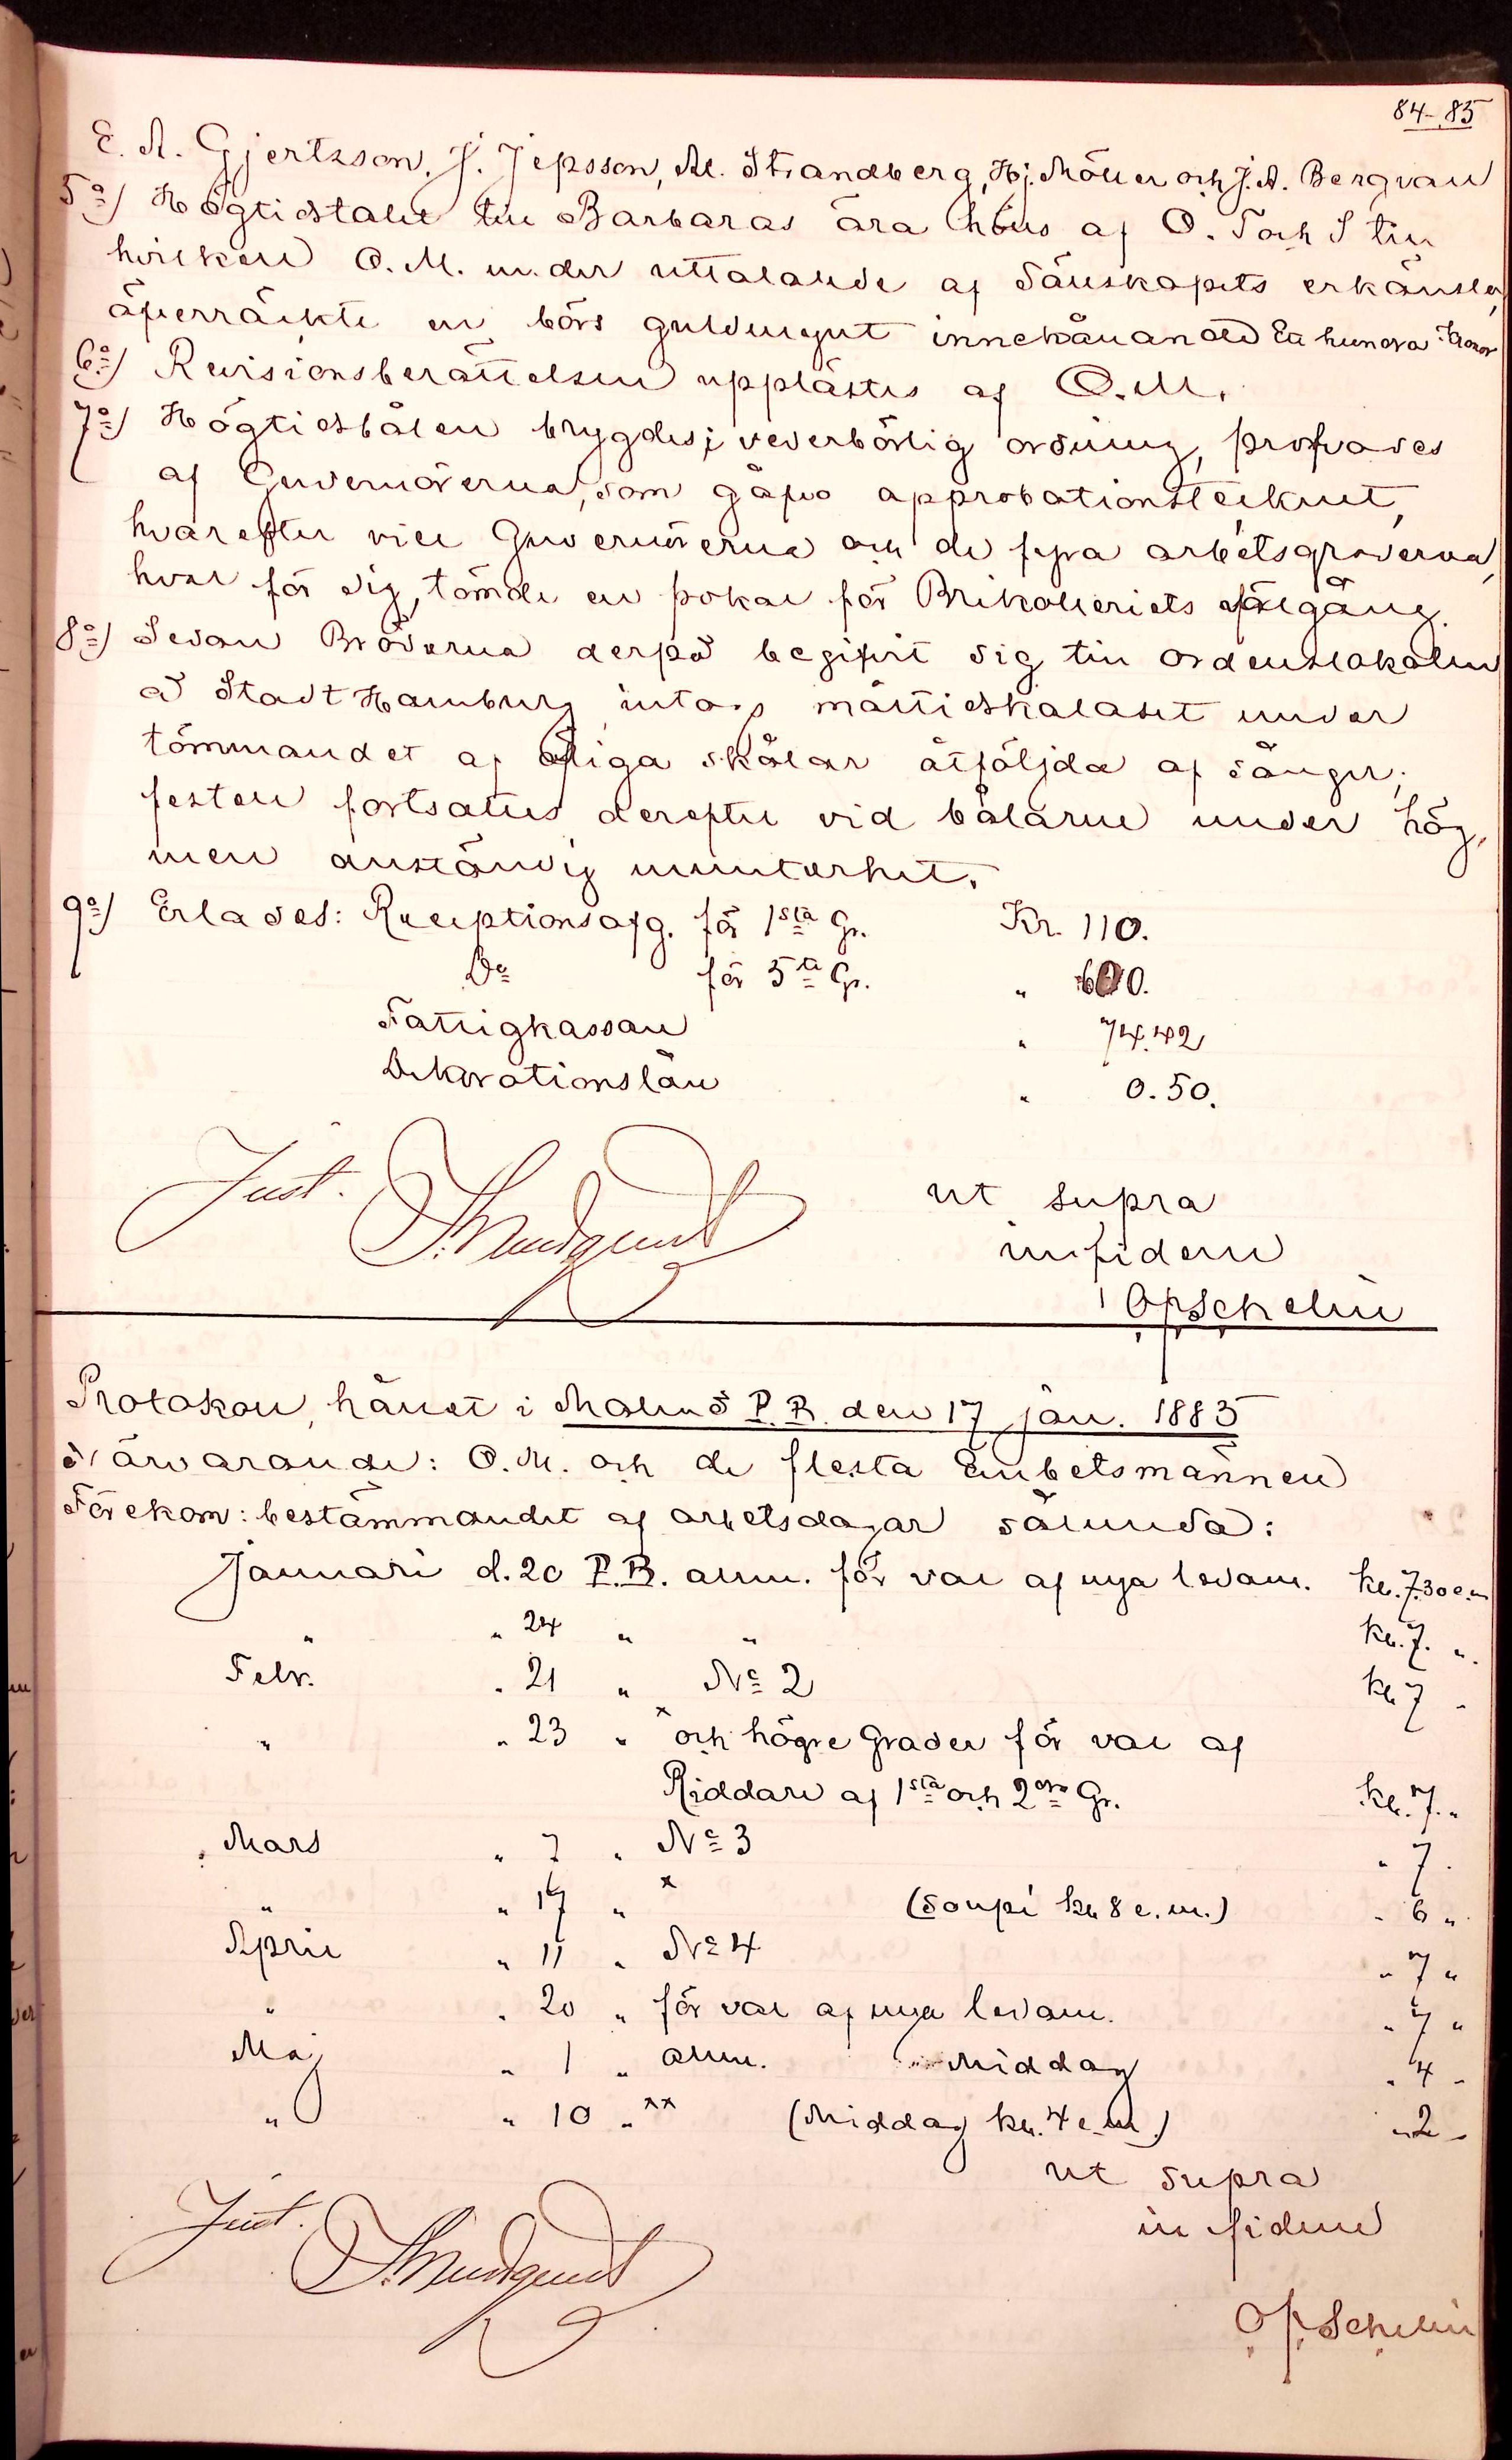 84-85
E. A. Gjertsson, J. Jepsson, M. Strandberg, Hj. Möller och J. A. Bergvall
5º) Högtidstalet till Barbaras ära hölls af O. T och S till
hvilken O. M. under uttalande af Sällskapets erkänsla,
äfverräckte en börs guldmynt innehållande Ett hundra Kronor
6º) Revisionsberättelsen upplästes af O. M.
7º) Högtidsbålen brygdes i vederbörlig ordning, profvades
af Guvernörerna, som gåfvo approbationstecknet,
hvarefter vice Guvernörerna och de fyra arbetsgraderna,
hvar för sig, tömde en pokal för Brikolleriets välgång.
8º) Sedan Bröderna derpå begifvit sig till ordenslokalen
å Stadt Hamburg intogs måltidskalaset under
tömmandet af öfliga skålar åtföljda af sånger;
festen fortsattes derefter vid bålarne under hög,
men anständig munterhet.
9º) Erlades: Receptionsafg. för 1sta Gr. Kr. 110.
Dº för 5ta Gr. " 600.
Fattigkassan " 74.42
Dekorationslån " 0.50.
Just. ut supra
in fidem
O P Schelin
Protokoll, hållet i Malmö P. B. den 17 jan. 1885
Närvarande: O. M. och de flesta Embetsmännen
Förekom: bestämmandet af arbetsdagar sålunda:
Januari d. 20 P.B. allm. för val af nya ledam. kl. 7.30 e.m
" " 24 " " kl. 7. "
Febr. " 21 " Nº 2 kl 7 "
" " 23 " x och högre Grader för val af
Riddare af 1sta och 2dra Gr. kl. 7. "
Mars " 7 " Nº 3 " 7 "
" " 17 " x (Soupé kl 8 e. m.) " 6 "
April " 11 " Nº 4 " 7 "
" " 20 " för val af nya ledam. " 7 "
Maj " 1 " allm. Middag " 4 "
" " 10 " xx (Middag kl. 4 e. m.) " 2 "
ut supra
Just. in fidem
O P Schelin